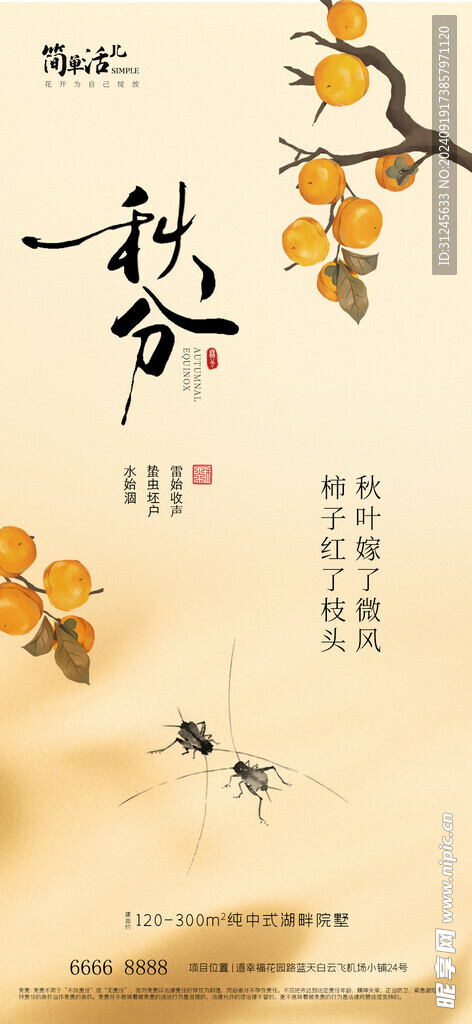 简单活儿
SIMPLE
花开为自己绽放
秋分
AUTUMNAL
EQUINOX
雷始收声
蛰虫坯户
水始涸
秋叶嫁了微风
柿子红了枝头
建面约
120-300m²纯中式湖畔院墅
6666 8888
项目位置|道幸福花园路蓝天白云飞机场小铺24号
ID:31245633 NO:20240919173857971120
昵享网 www.nipic.cn